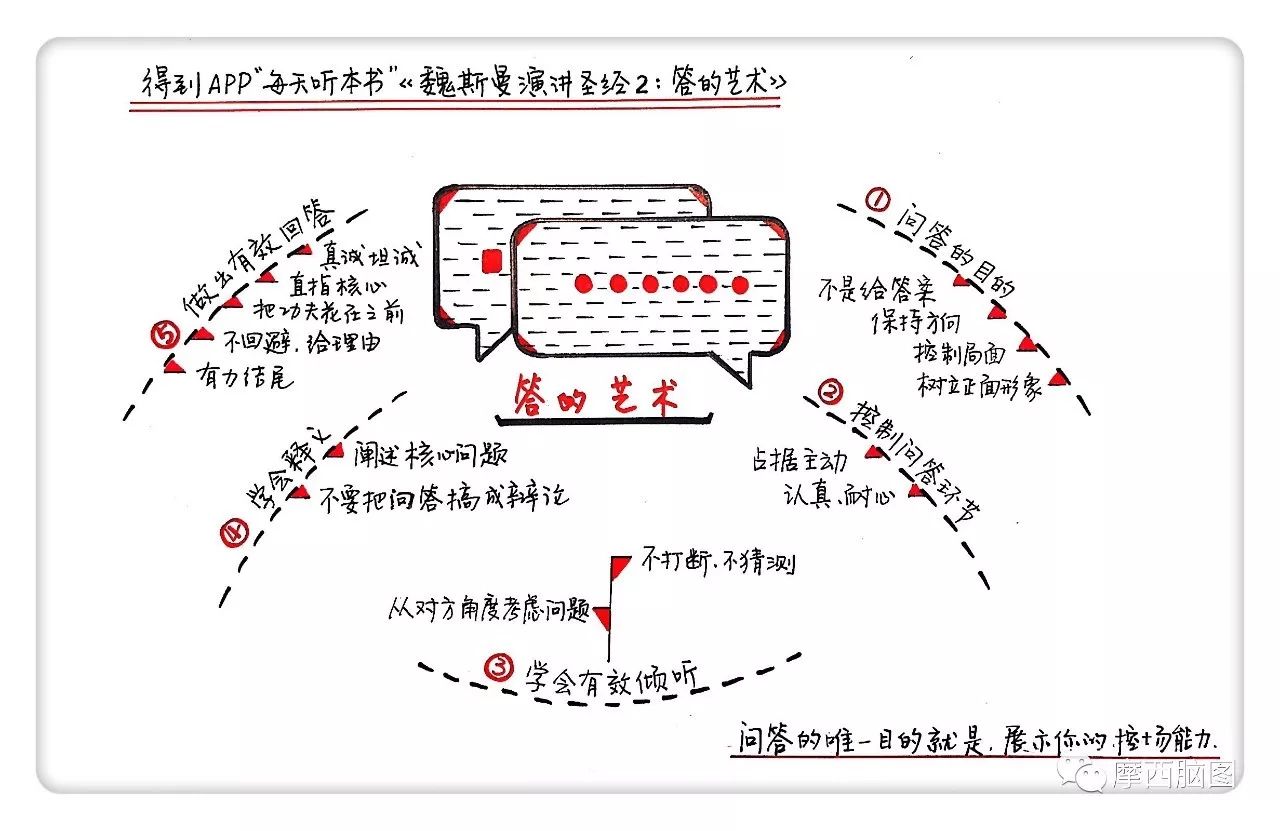 得到APP"每天听本书"《魏斯曼演讲圣经2：答的艺术》
答的艺术
① 问答的目的
不是给答案
保持方向
控制局面
树立正面形象
② 控制问答环节
占据主动
认真、耐心
③ 学会有效倾听
不打断、不猜测
从对方角度考虑问题
④ 学会释义
阐述核心问题
不要把问答搞成辩论
⑤ 做出有效回答
真诚坦诚
直指核心
把功夫花在之前
不回避、给理由
有力结尾
问答的唯一目的就是，展示你的控场能力.
摩西脑图